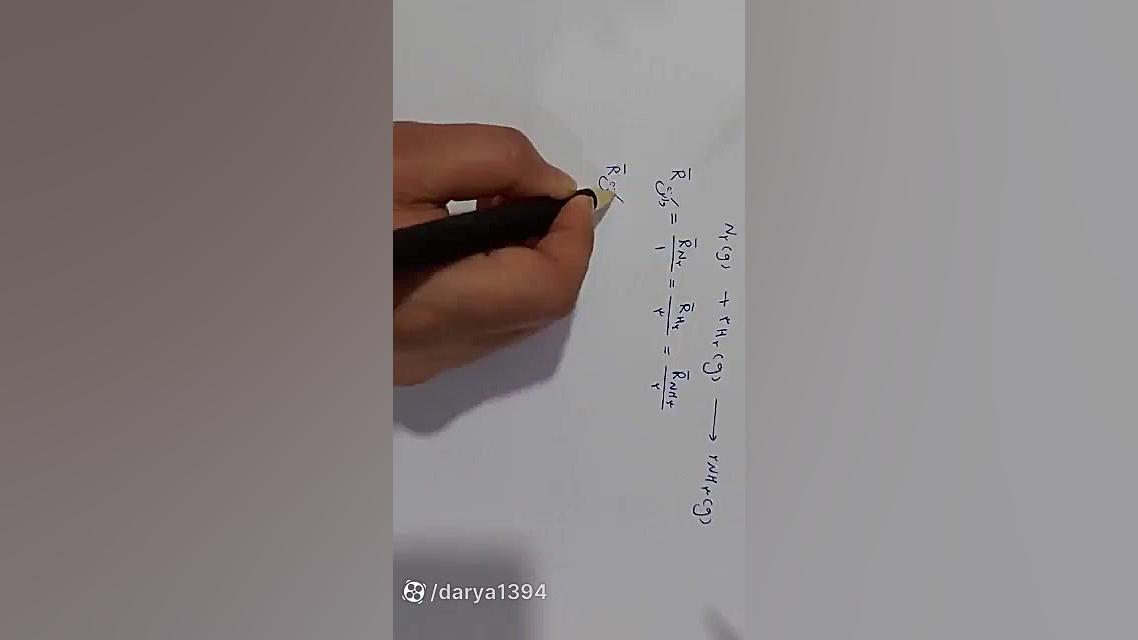 N₂(g) + ۳H₂(g) ⟶ ۲NH₃(g)
R̄واکنش = R̄N₂/۱ = R̄H₂/۳ = R̄NH₃/۲
R̄
/darya1394